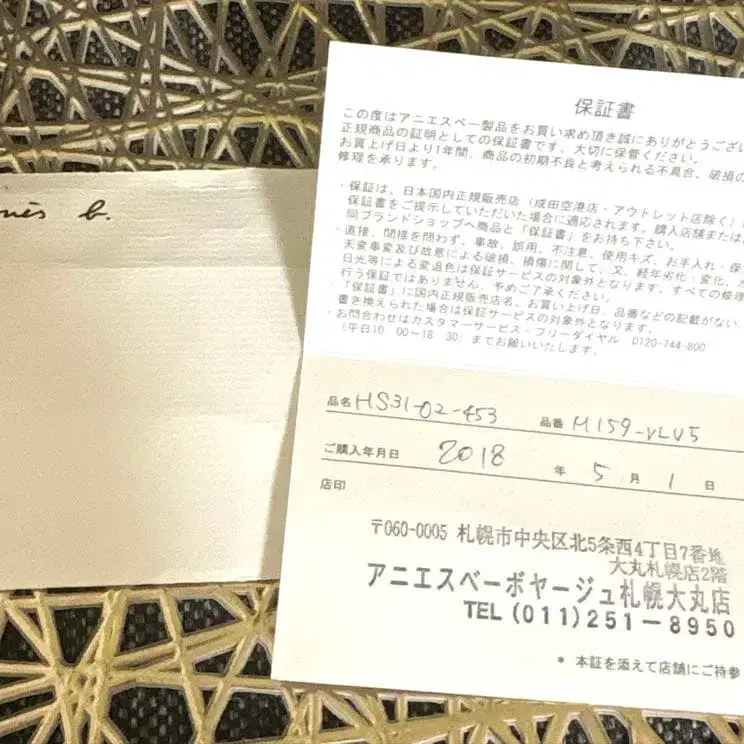 b.
保証書
この度はアニエスベー製品をお買い求め頂き誠にありがとうござい
正規商品の証明としての保証書です、大切に保管ください。
お買上げ日より1年間、商品の初期不良と考えられる不具合、破損の
修理を承ります。
・保証は、日本国内正規販売店（成田空港店・アウトレット店除く）に
保証書をご提示していただいた場合に適応されます。購入店舗または
同ブランドショップへ商品と「保証書」をお持ち下さい。
・直接、間接を問わず、事故、誤用、不注意、使用キズ、お手入れ・保
天変事変及び故意による破損、損傷に関して、又、経年劣化・変化、水
日光等による変退色は保証サービスの対象外となります。すべての修理
行う保証ではありません、予めご了承ください。
・「保証書」に国内正規販売店名、お買い上げ日、品番などの記載がない、
書き換えられた場合は保証サービスの対象外となります。
・お問合わせはカスタマーサービス・フリーダイヤル 0120-744-800
（平日10 00〜18 30）までお願いいたします。
品名 HS31-02-453 品番 M159-VLV5
ご購入年月日 2018 年 5 月 1 日
店印
〒060-0005 札幌市中央区北5条西4丁目7番地
大丸札幌店2階
アニエスベーボヤージュ札幌大丸店
TEL (011)251-8950
* 本証を添えて店舗にご持参